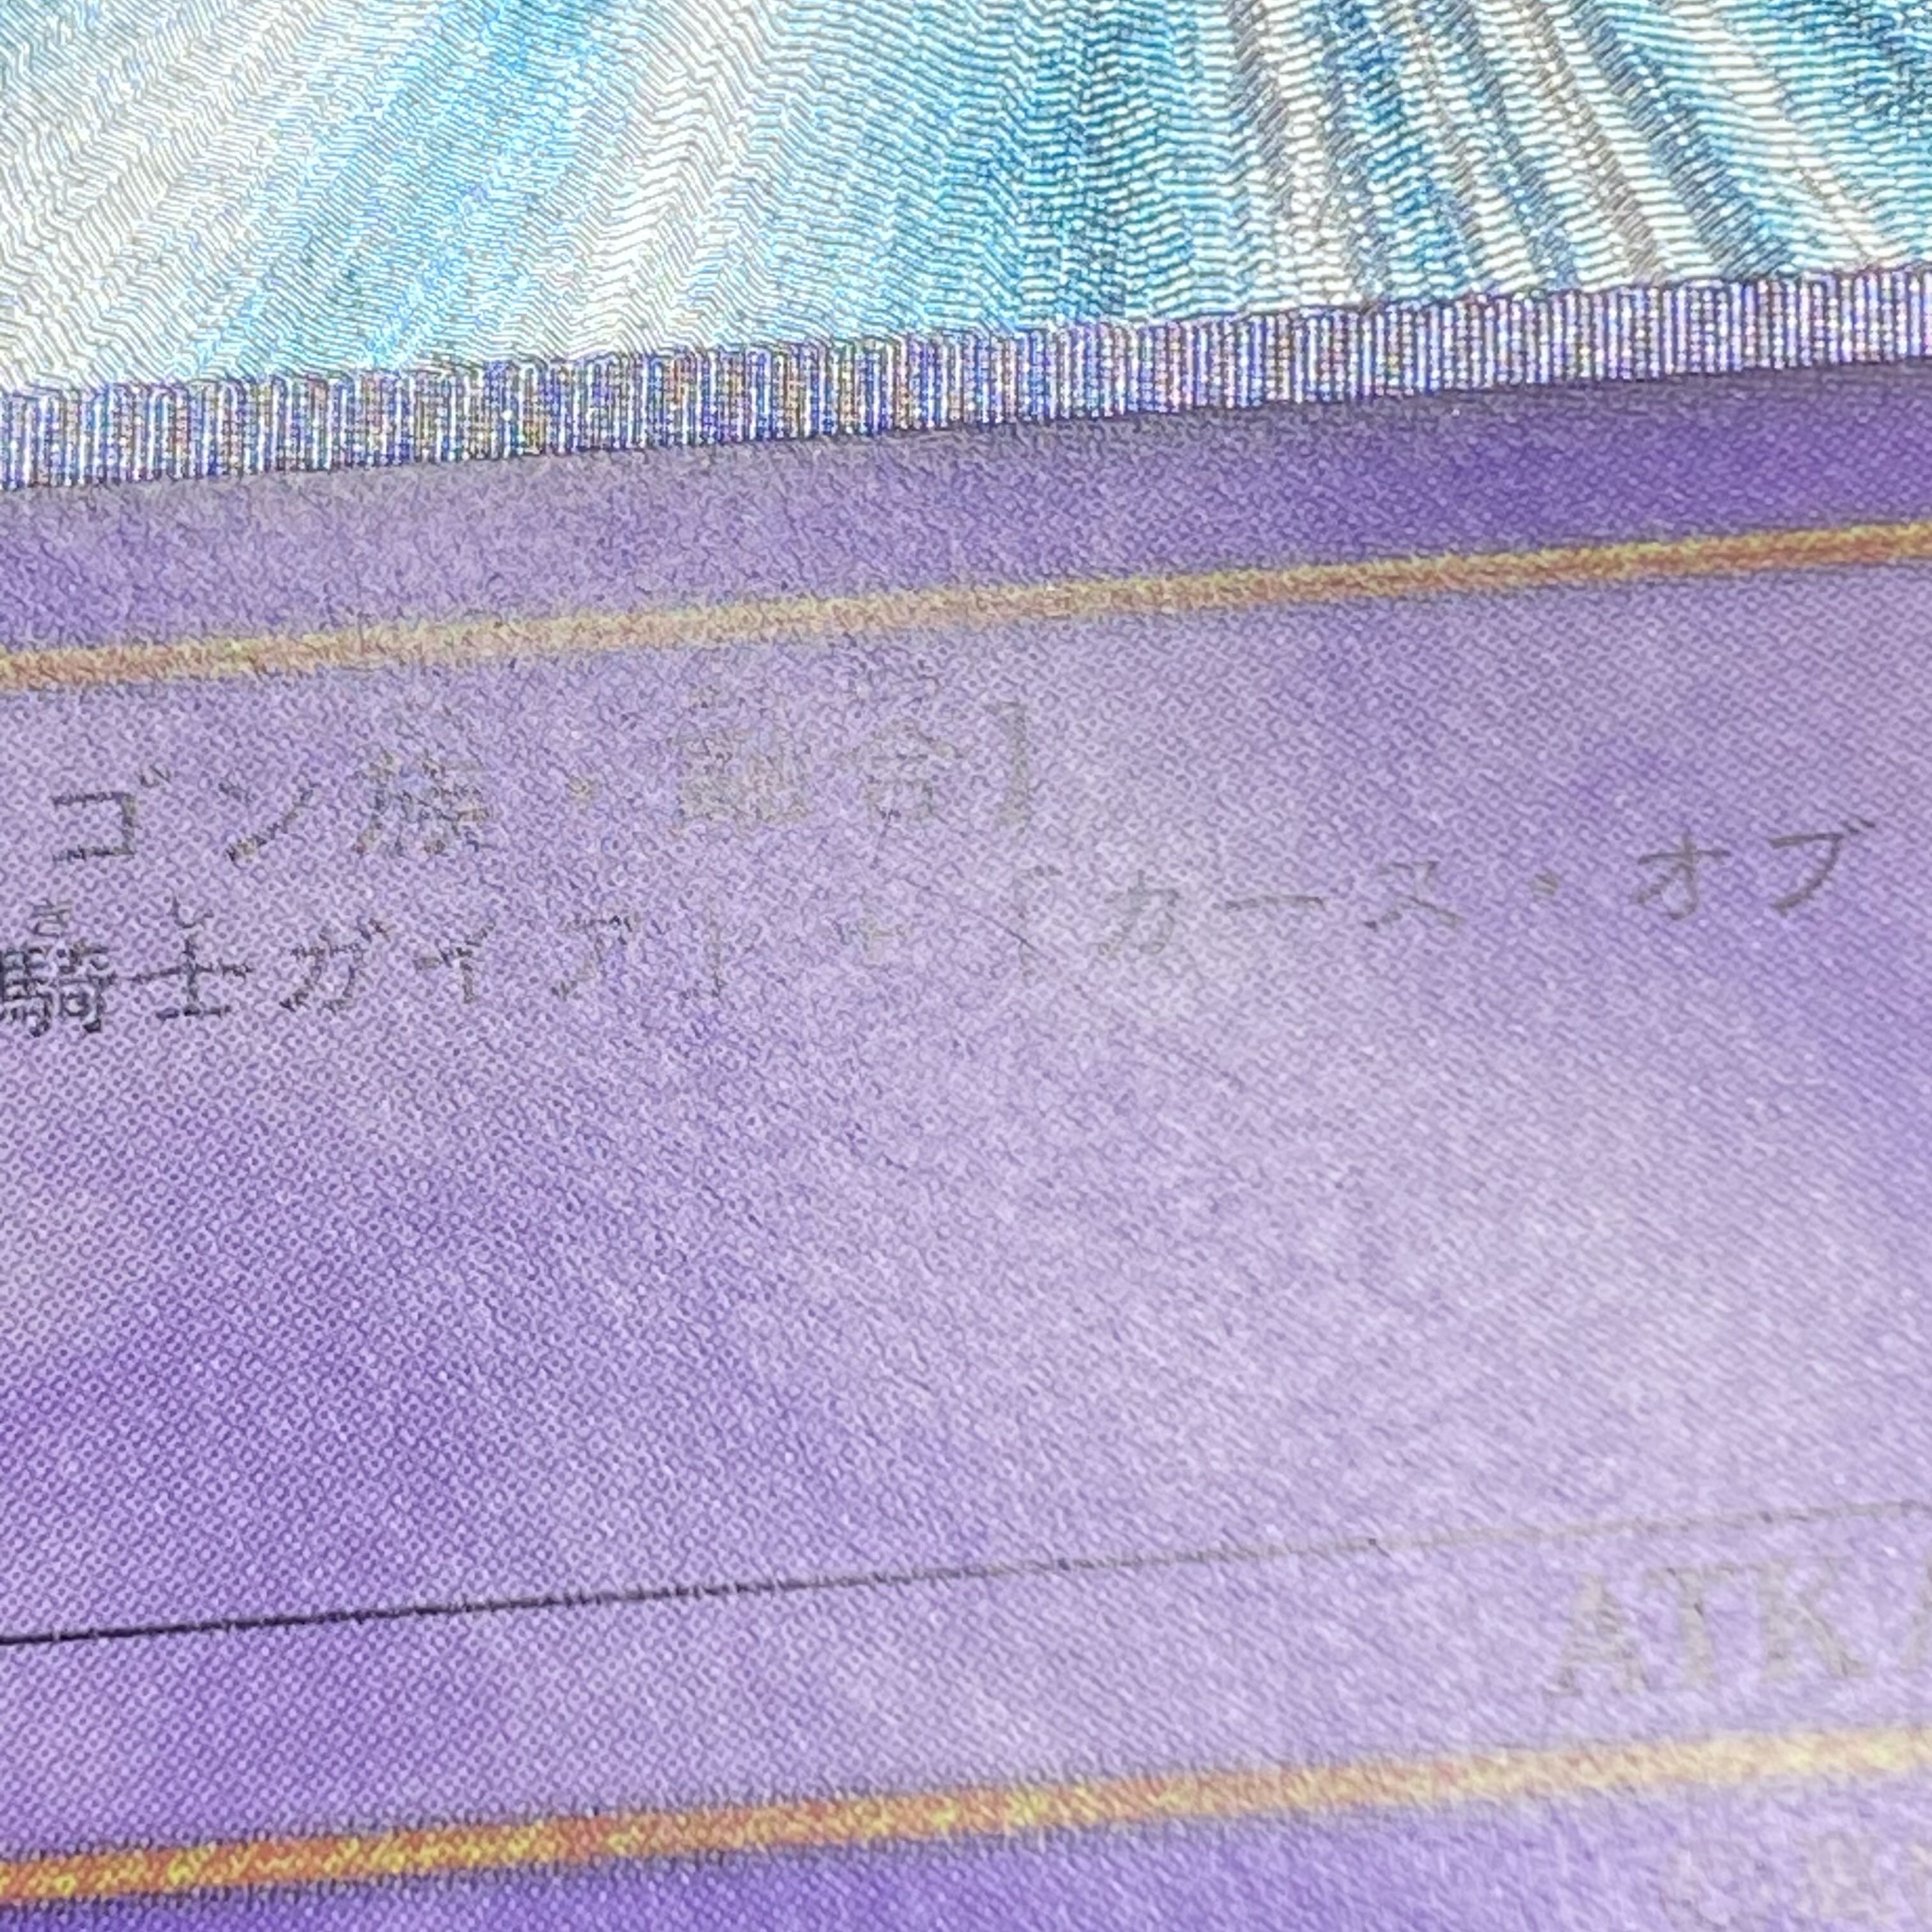 ゴン族・融合】
きし
騎士ガイア」+「カース・オブ
ATK/